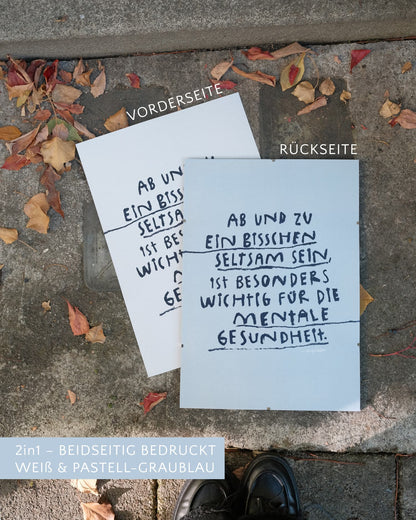 VORDERSEITE
RÜCKSEITE
AB UN
EIN BISSC
SELTSAM
IST BES
WICHTI
M
GE
AB UND ZU
EIN BISSCHEN
SELTSAM SEIN,
IST BESONDERS
WICHTIG FÜR DIE
MENTALE
GESUNDHEIT.
2in1 – BEIDSEITIG BEDRUCKT
WEIß & PASTELL-GRAUBLAU